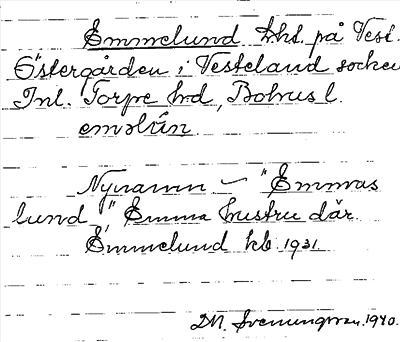 Emmelund lht. på Vest.
Östergården i Vesteland socken
Inl. Torpe hd, Bohus l.
eməlɯ́n
Nynamn – "Emmas
lund" Emma hustru där.
Emmelund kb. 1931.
DN. Svenungsson. 1940.